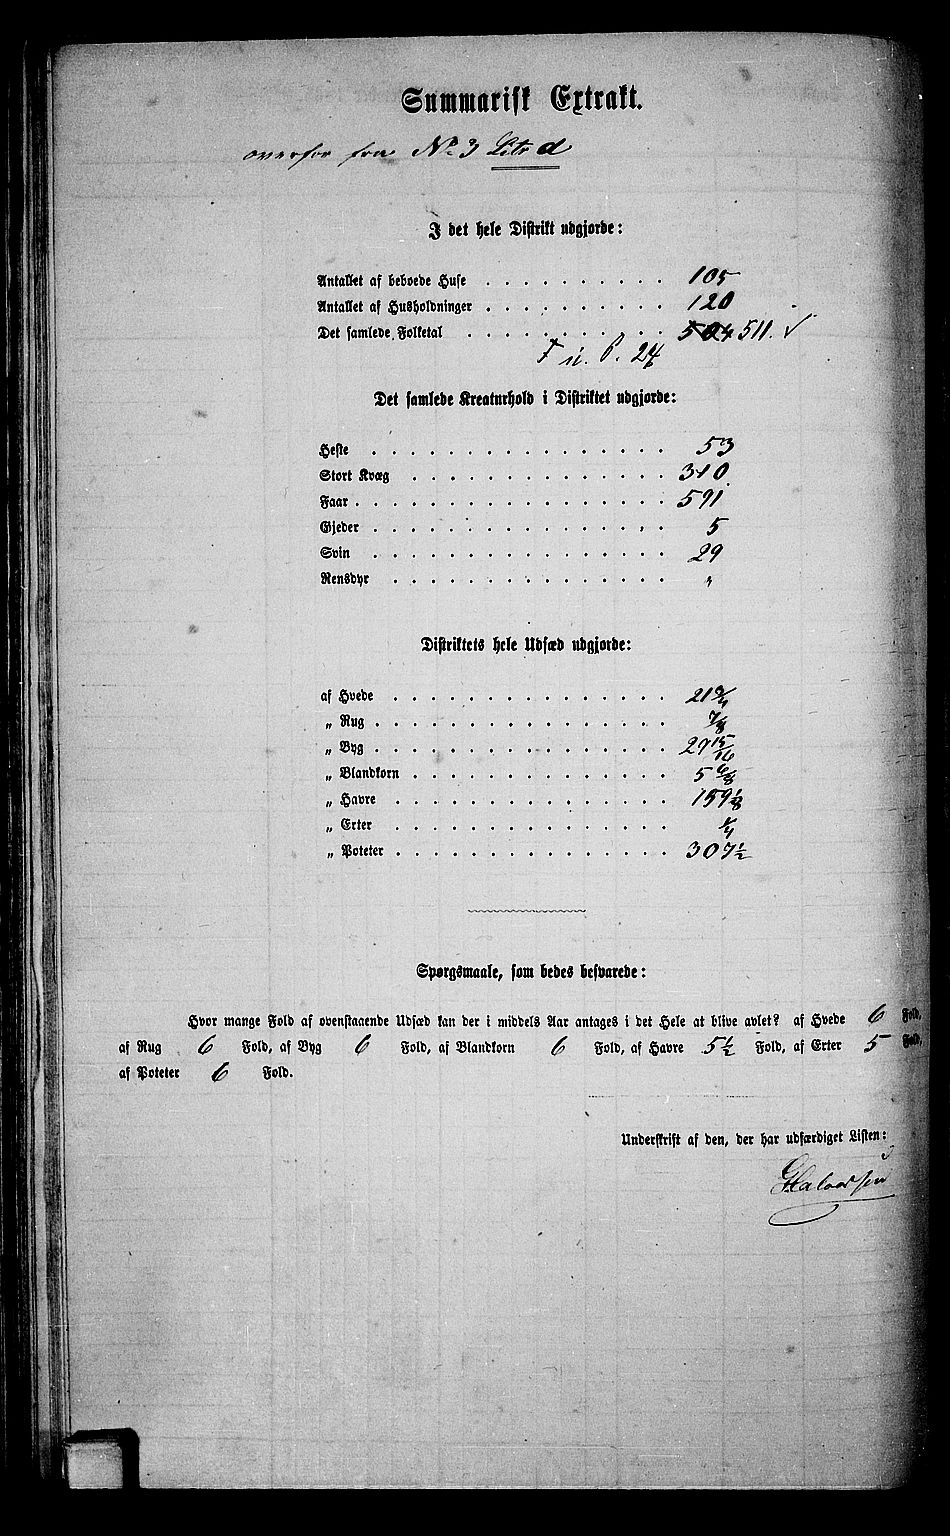 Summarisk Extrakt.
overfor fra No 3 Litr d
I det hele Distrikt udgjorde:
Antallet af beboede Huse . . . . . . . . . . 105
Antallet af Husholdninger . . . . . . . . . . 120
Det samlede Folketal . . . . . . . . . . 504 511. ✓
T. u. P. 24
Det samlede Kreaturhold i Distriktet udgjorde:
Heste . . . . . . . . . . . . . . . . 53
Stort Kvæg . . . . . . . . . . . . . . 310
Faar . . . . . . . . . . . . . . . . . 591
Gjeder . . . . . . . . . . . . . . . . 5
Svin . . . . . . . . . . . . . . . . 29
Rensdyr . . . . . . . . . . . . . . . "
Distriktets hele Udsæd udgjorde:
af Hvede . . . . . . . . . . . . . . 21
„ Rug . . . . . . . . . . . . . . . 7/8
„ Byg . . . . . . . . . . . . . . . 29 15/16
„ Blandkorn . . . . . . . . . . . . . 5 6/8
„ Havre . . . . . . . . . . . . . . 159 1/8
„ Erter . . . . . . . . . . . . . .
„ Poteter . . . . . . . . . . . . . . 307 1/2
Spørgsmaale, som bedes besvarede:
Hvor mange Fold af ovenstaaende Udsæd kan der i middels Aar antages i det Hele at blive avlet? af Hvede 6 Fold,
af Rug 6 Fold, af Byg 6 Fold, af Blandkorn 6 Fold, af Havre 5 1/2 Fold, af Erter 5 Fold,
af Poteter 6 Fold.
Underskrift af den, der har udfærdiget Listen:
GHalvorsen